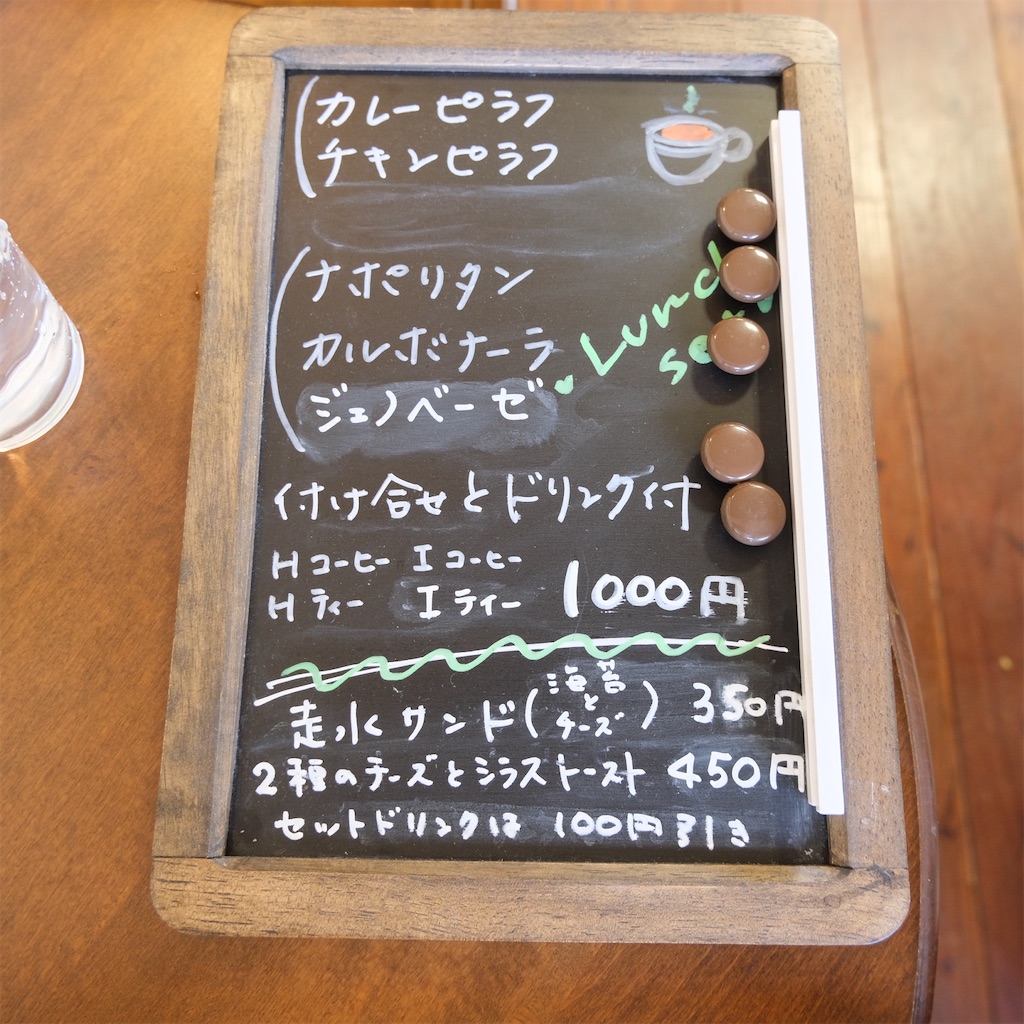 カレーピラフ
チキンピラフ
ナポリタン
カルボナーラ
ジェノベーゼ
Lunch
付け合せとドリンク付
Hコーヒー Iコーヒー
Hティー Iティー
1000円
走水サンド(海苔とチーズ) 350円
2種のチーズとシラストースト 450円
セットドリンクは 100円引き